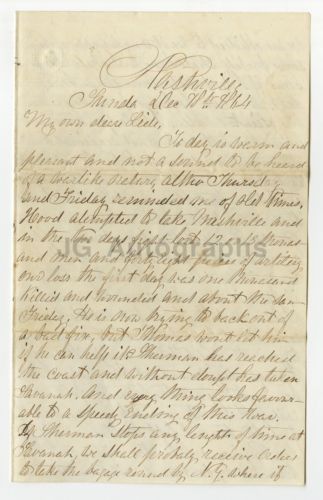 Nashville,
Sunda Dec 18th 1864
My own dear Side,
To day is warm and
pleasant and not a sound to be heard
of a warlike nature, altho Thursday
and Friday reminded me of old times,
Hood attempted to take Nashville and
in the two days fight lost
and men and pieces of artillery
our loss the first day was one thousand
killed and wounded and about the same
Friday, He is now trying to back out of
a bad fix, but Thomas wont let him
if he can help it. Sherman has reached
the coast and without doubt has taken
Savanah. And every thing looks favor
able to a speedy ending of this War.
If Sherman stops any length of time at
Savanah, we shall probaly receive orders
to take the bagage round by N.Y. where if
JG Autographs